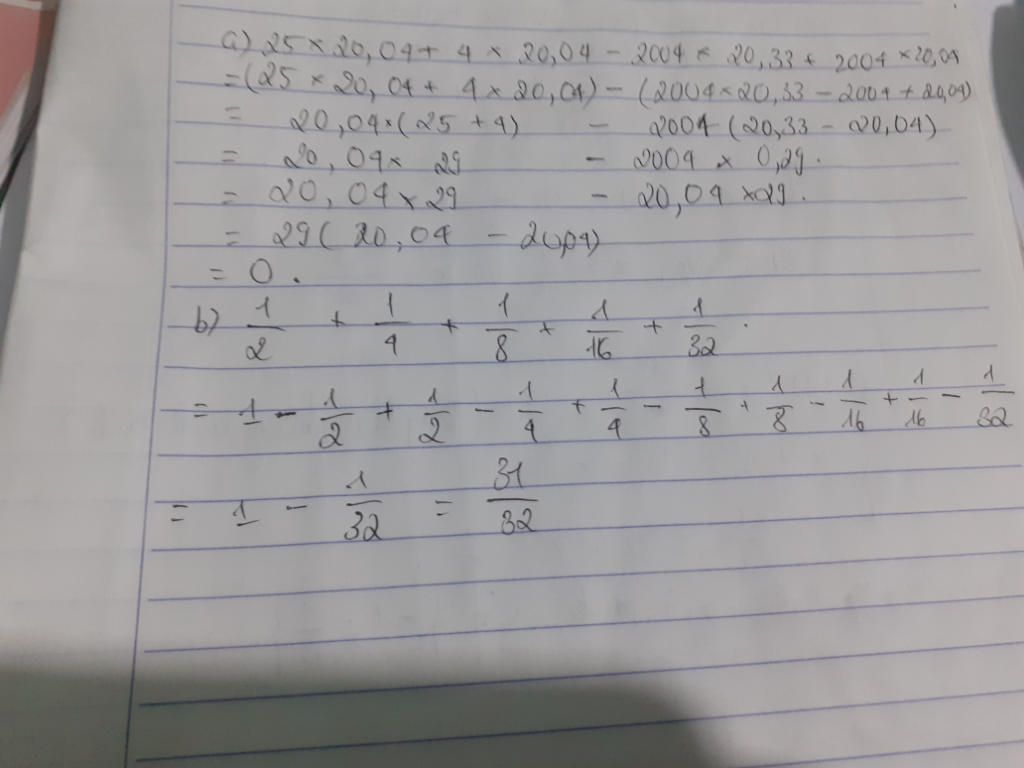 a) 25 × 20,04 + 4 × 20,04 - 2004 × 20,33 + 2004 × 20,04
= (25 × 20,04 + 4 × 20,04) - (2004 × 20,33 - 2004 + 20,04)
= 20,04 × (25 + 4) - 2004 (20,33 - 20,04)
= 20,04 × 29 - 2004 × 0,29.
= 20,04 × 29 - 20,04 × 29.
= 29 (20,04 - 20,04)
= 0.
b) 1/2 + 1/4 + 1/8 + 1/16 + 1/32.
= 1 - 1/2 + 1/2 - 1/4 + 1/4 - 1/8 + 1/8 - 1/16 + 1/16 - 1/32
= 1 - 1/32 = 31/32